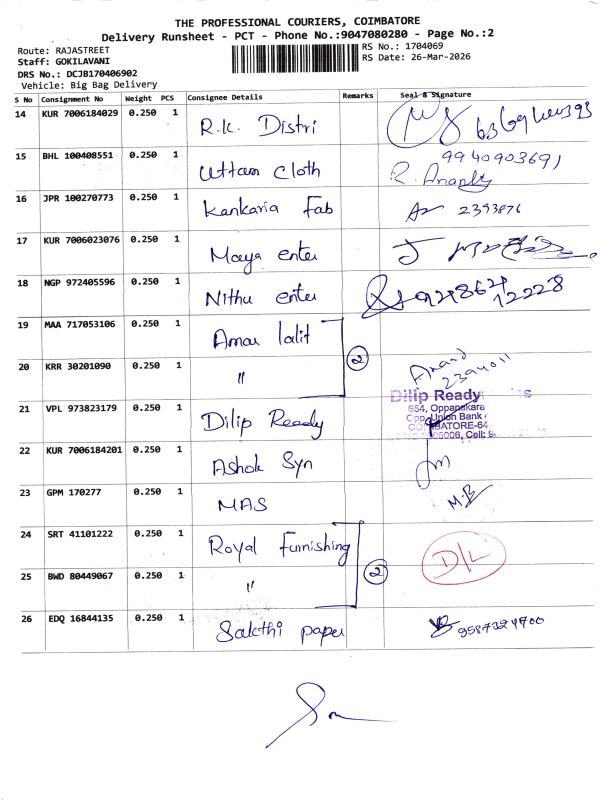 THE PROFESSIONAL COURIERS, COIMBATORE
Delivery Runsheet - PCT - Phone No.:9047080280 - Page No.:2
Route: RAJASTREET
Staff: GOKILAVANI
DRS No.: DCJB170406902
Vehicle: Big Bag Delivery
RS No.: 1704069
RS Date: 26-Mar-2026
S No Consignment No Weight PCS Consignee Details Remarks Seal & Signature
14 KUR 7006184029 0.250 1 R.K. Distri
15 BHL 100408551 0.250 1 Uttam Cloth 9940903691
R. Ananly
16 JPR 100270773 0.250 1 Kankaria Fab 2393876
17 KUR 7006023076 0.250 1 Maya enter
18 NGP 972405596 0.250 1 Nithu enter
19 MAA 717053106 0.250 1 Amar lalit
2
20 KRR 30201090 0.250 1 " Anand
2394011
21 VPL 973823179 0.250 1 Dilip Ready Dilip Ready
654, Oppanakara
Opp. Union Bank
22 KUR 7006184201 0.250 1 Ashok Syn
23 GPM 170277 0.250 1 MAS M.B
24 SRT 41101222 0.250 1 Royal Furnishing D/L
2
25 BWD 80449067 0.250 1 "
26 EDQ 16844135 0.250 1 Sakthi paper 9587324700